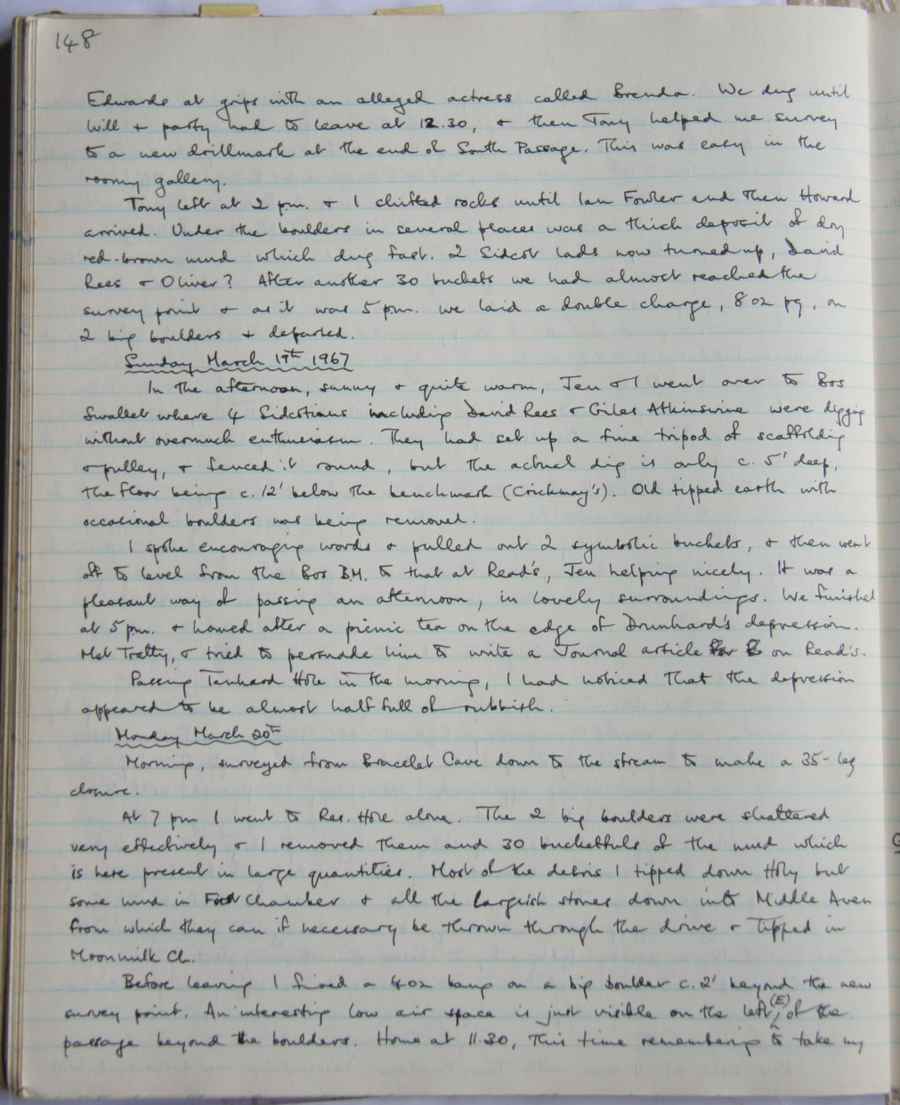 148
Edwards at grips with an alleged actress called Brenda. We dug until
Will + party had to leave at 12.30, + then Tony helped me survey
to a new drillmark at the end of South Passage. This was easy in the
roomy gallery.
Tony left at 2 pm. + I shifted rocks until Ian Fowler and then Howard
arrived. Under the boulders in several places was a thick deposit of dry
red-brown mud which dug fast. 2 Sidcot lads now turned up, David
Rees + Oliver? After another 30 buckets we had almost reached the
survey point + as it was 5 pm. we laid a double charge, 8 oz pg, on
2 big boulders + departed.
Sunday March 19th 1967
In the afternoon, sunny + quite warm, Jen + I went over to Bos
Swallet where 4 Sidcotians including David Rees + Giles Atkinswine were digging
without overmuch enthusiasm. They had set up a fine tripod of scaffolding
+ pulley, + fenced it round, but the actual dig is only c. 5' deep,
the floor being c. 12' below the benchmark (Crickmay's). Old tipped earth with
occasional boulders was being removed.
I spoke encouraging words + pulled out 2 symbolic buckets, + then went
off to level from the Bos B.M. to that at Read's, Jen helping nicely. It was a
pleasant way of passing an afternoon, in lovely surroundings. We finished
at 5 pm. + homed after a picnic tea on the edge of Drunkard's depression.
Met Tratty, + tried to persuade him to write a Journal article on Read's.
Passing Tankard Hole in the morning, I had noticed that the depression
appeared to be almost half full of rubbish.
Monday March 20th
Morning, surveyed from Bracelet Cave down to the stream to make a 35-leg
closure.
At 7 pm I went to Res. Hole alone. The 2 big boulders were shattered
very effectively + I removed them and 30 bucketfuls of the mud which
is here present in large quantities. Most of the debris I tipped down Hóly but
some mud in Foot Chamber + all the largeish stones down into Middle Aven
from which they can if necessary be thrown through the drive + tipped in
Moonmilk Ch.
Before leaving I fired a 4 oz bang on a big boulder c. 2' beyond the new
survey point. An interesting low air space is just visible on the left (E) of the
passage beyond the boulders. Home at 11.30, this time remembering to take my